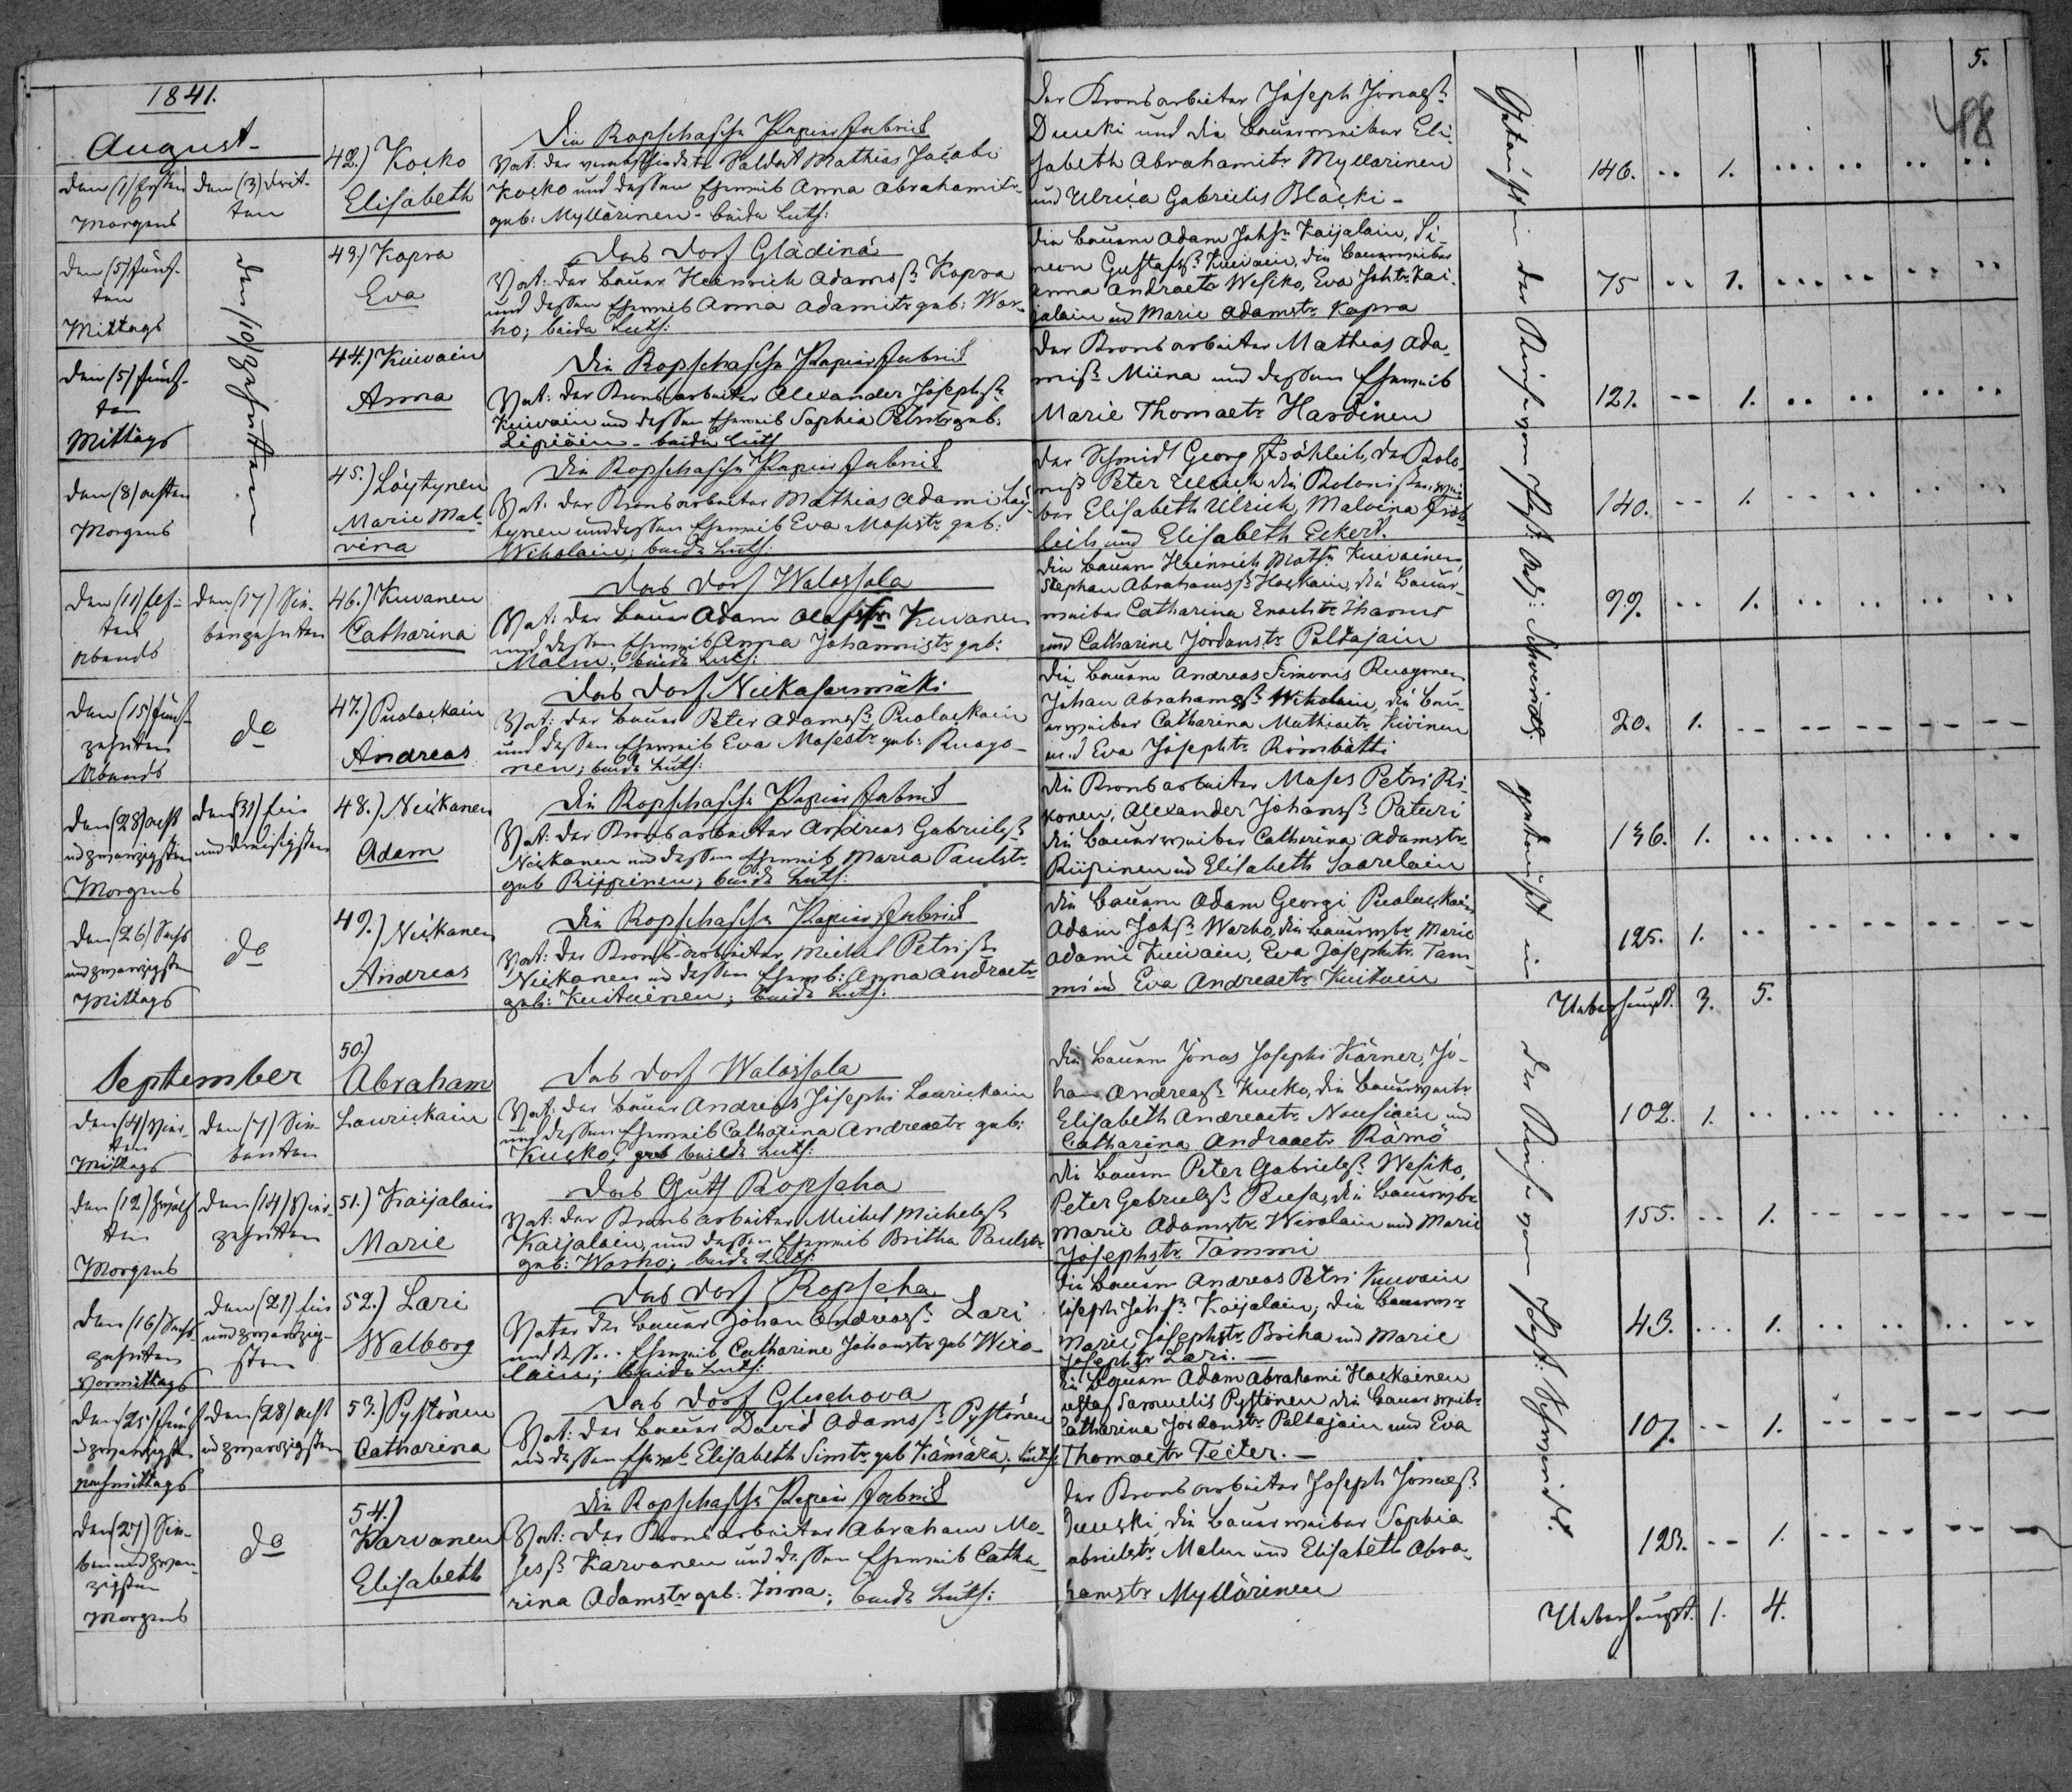 1841.
5.
48
August
den (1) Ersten
Morgens
den (3) drit-
ten
42.) Kocko
Elisabeth
Die Ropschasche Papier Fabrick
Vat: der verabschiedete Soldat Mathias Jacobi
Kocko und dessen Eheweib Anna Abrahamitr
geb: Myllärinen - beide Luth:
Der Kronsarbeiter Joseph Jonaeß
und die Bauerweiber Eli-
sabeth Abrahamitr Myllarinen
und Ulrica Gabrielis Bläcki -
146. .. 1.
den (5) fünf-
ten
Mittags
den (10) zehnten
43.) Kapra
Eva
Das Dorf Glädinä
Vat: der Bauer Heinrich Adamsß Kapra
und dessen Eheweib Anna Adamitr geb: War-
ho; beide Luth:
Die Bauern Adam Johß Kaijalain, Si-
meon Gustafsß Kuivain, die Bauerweiber
Anna Andraetr Wesiko, Eva Johtr Kai-
jalain und Marie Adamstr Kapra
75 .. 1.
den (5) fünf-
ten
Mittags
44.) Kuivain
Anna
Die Ropschasche Papier Fabrick
Vat: der Kronsarbeiter Alexander Josephß
Kuivain und dessen Eheweib Sophia Petristr geb:
Lipiäin - beide Luth
Der Kronsarbeiter Mathias Ada-
miß Miina und dessen Eheweib
Marie Thomaetr Hardinen
121. -- 1.
den (8) achten
Morgens
45.) Löytynen
Marie Mal-
vina
Die Ropschasche Papier Fabrick
Vat: der Kronsarbeiter Mathias Adami Löy-
tynen und dessen Eheweib Eva Mosestr geb:
Wiholain; beide Luth:
Der Schmidt Georg Fröhlich, der Kolo-
nist Peter Ulrich die Kolonisten wei-
ber Elisabeth Ulrich, Malvina Fröh-
lich und Elisabeth Eckert.
140. -- 1.
den (11) Elf-
ten
Abends
den (17) Sie-
benzehnten
46.) Kuvanen
Catharina
Das Dorf Walassala
Vat: der Bauer Adam Kuvanen
und dessen Eheweib Anna Johannistr geb:
Malm; beide Luth:
Die Bauern Heinrich Mathß Kuivainen,
Stephan Abrahamsß Hackain, die Bauer-
weiber Catharina Enochtr Ihamus
und Catharine Jordanstr Paltajain
99. .. 1.
den (15) fünf-
zehnten
Abends
do
47.) Puolackain
Andreas
Das Dorf Niekasermäki
Vat: der Bauer Peter Adamsß Puolackain
und dessen Eheweib Eva Mosestr geb: Ruago-
nen; beide Luth:
Die Bauern Andreas Simonis Ruagonen
Johan Abrahamsß Wiholain, die Bau-
erweiber Catharina Mathiaetr Kivinen
und Eva Josephtr Römbätti
20. 1.
den (28) acht
und zwanzigsten
Morgens
den (31) Ein
und dreisigsten
48.) Neikanen
Adam
Die Ropschasche Papier Fabrick
Vat: der Kronsarbeiter Andreas Gabrielsß
Neikanen und dessen Eheweib Maria Paulstr
geb Riipinen; beide Luth:
Die Kronsarbeiter Moses Petri Ri-
konen, Alexander Johansß Paturi
die Bauerweiber Catharina Adamstr
Riipinen und Elisabeth Saarelain
136. 1.
den (26) Sechs
und zwanzigsten
Mittags
do
49.) Neikanen
Andreas
Die Ropschasche Papier Fabrick
Vat: der Krons-arbeiter Michel Petriß
Neikanen und dessen Ehewb: Anna Andraetr
geb: Kuitunen; beide Luth:
Die Bauern Adam Georgi Puolackain
Adam Johß Warho, die Bauerwbr Marie
Adami Kuivain, Eva Josephtr Tam-
mi und Eva Andreaetr Kuitain
125. 1.
Ueberhaupt. 3. 5.
September
den (4) Vier-
ten
Mittags
den (7) Sie-
benten
50.)
Abraham
Laurickain
Das Dorf Walassala
Vat: der Bauer Andreas Josephi Laurickain
und dessen Eheweib Catharina Andreaetr geb:
Kucko, beide Luth:
Die Bauern Jonas Josephi Kärner, Jo-
han Andreasß Kucko, die Bauerweibr
Elisabeth Andreaetr Nousiain und
Catharina Andraetr Rämö
102. 1.
den (12) zwölf
ten
Morgens
den (14) Vier-
zehnten
51.) Kaijalain
Marie
Das Guth Ropscha
Vat: der Kronsarbeiter Michel Michelsß
Kaijalain, und dessen Eheweib Britha Paulstr
geb: Warho; beide Luth:
Die Bauern Peter Gabrielsß Wesiko,
Peter Gabrielsß Rusa, die Bauerwbr
Marie Adamstr Wirolain und Marie
Josephstr Tammi
155. -- 1.
den (16) Sech-
zehnten
Vormittags
den (21) Ein
und zwanzig-
sten
52.) Lari
Walborg
Das Dorf Ropscha
Vater der Bauer Johan Andreasß Lari
und dessen Eheweib Catharine Johanstr geb Wiro-
lain; beide Luth:
Die Bauern Andreas Petri Kuivain
Joseph Johß Kaijalain; die Bauerwr
Marie Josephstr Briha und Marie
Josephtr Lari. -
43. ... 1.
den (25) fünf
und zwanzigsten
nachmittags
den (28) acht
und zwanzigsten
53.) Pystönen
Catharina
Das Dorf Gluchova
Vat: der Bauer David Adamsß Pystönen
und dessen Ehewb Elisabeth Simtr geb Kämärä; Luth:
Die Bauern Adam Abrahami Hackainen
Samuelis Pystönen die Bauerweibr
Catharina Jordanstr Paltajain und Eva
Thomaetr Teeter. -
107. -- 1.
den (27) Sie-
ben und zwan-
zigsten
Morgens
do
54.)
Karvanen
Elisabeth
Die Ropschasche Papier Fabrick
Vat: der Kronsarbeiter Abraham Mo-
sesß Karvanen und dessen Eheweib Catha-
rina Adamstr geb: ; beide Luth:
Der Kronsarbeiter Joseph Jonaeß
die Bauerweiber Sophia
Malm und Elisabeth Abra-
hamstr Myllärinen
123. -- 1.
Ueberhaupt. 1. 4.
Getauft in der Kirche vom Past: Adj: Schwindt.
getauft in der Kirche vom Past: Schwindt.